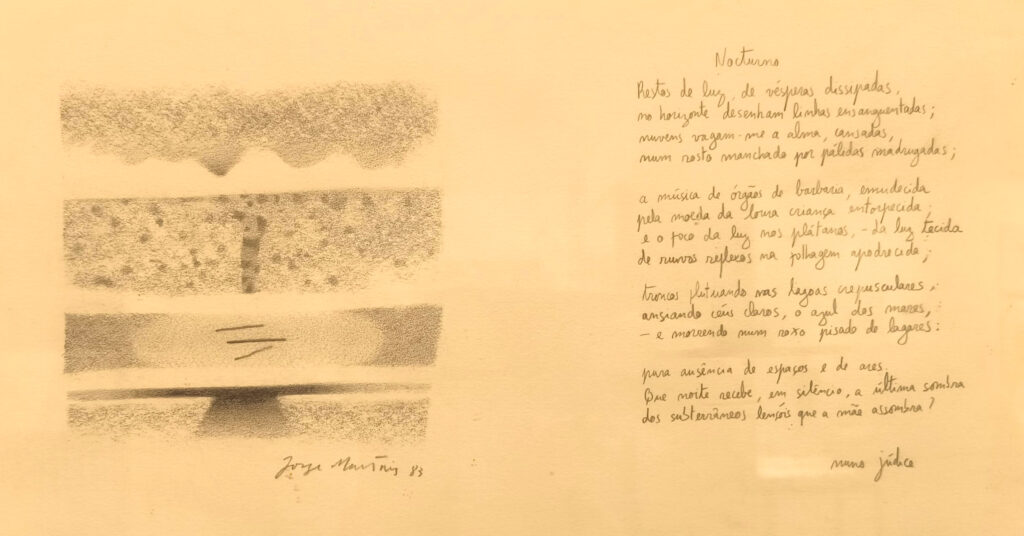 Jorge Martins 83
Nocturno
Restos de luz, de vésperas dissipadas,
no horizonte desenham linhas ensanguentadas;
nuvens vagam-me a alma, cansadas,
num rosto manchado por pálidas madrugadas;
a música de órgãos de barbaria, emudecida
pela moeda da loura criança entorpecida;
e o foco da luz nos plátanos, - da luz tecida
de ruivos reflexos na folhagem apodrecida;
troncos flutuando nas lagoas crepusculares,
ansiando céus claros, o azul dos mares,
- e morrendo num roxo pisado de lagares:
pura ausência de espaços e de ares.
Que noite recebe, em silêncio, a última sombra
dos subterrâneos lençóis que a mãe assombra?
nuno júdice